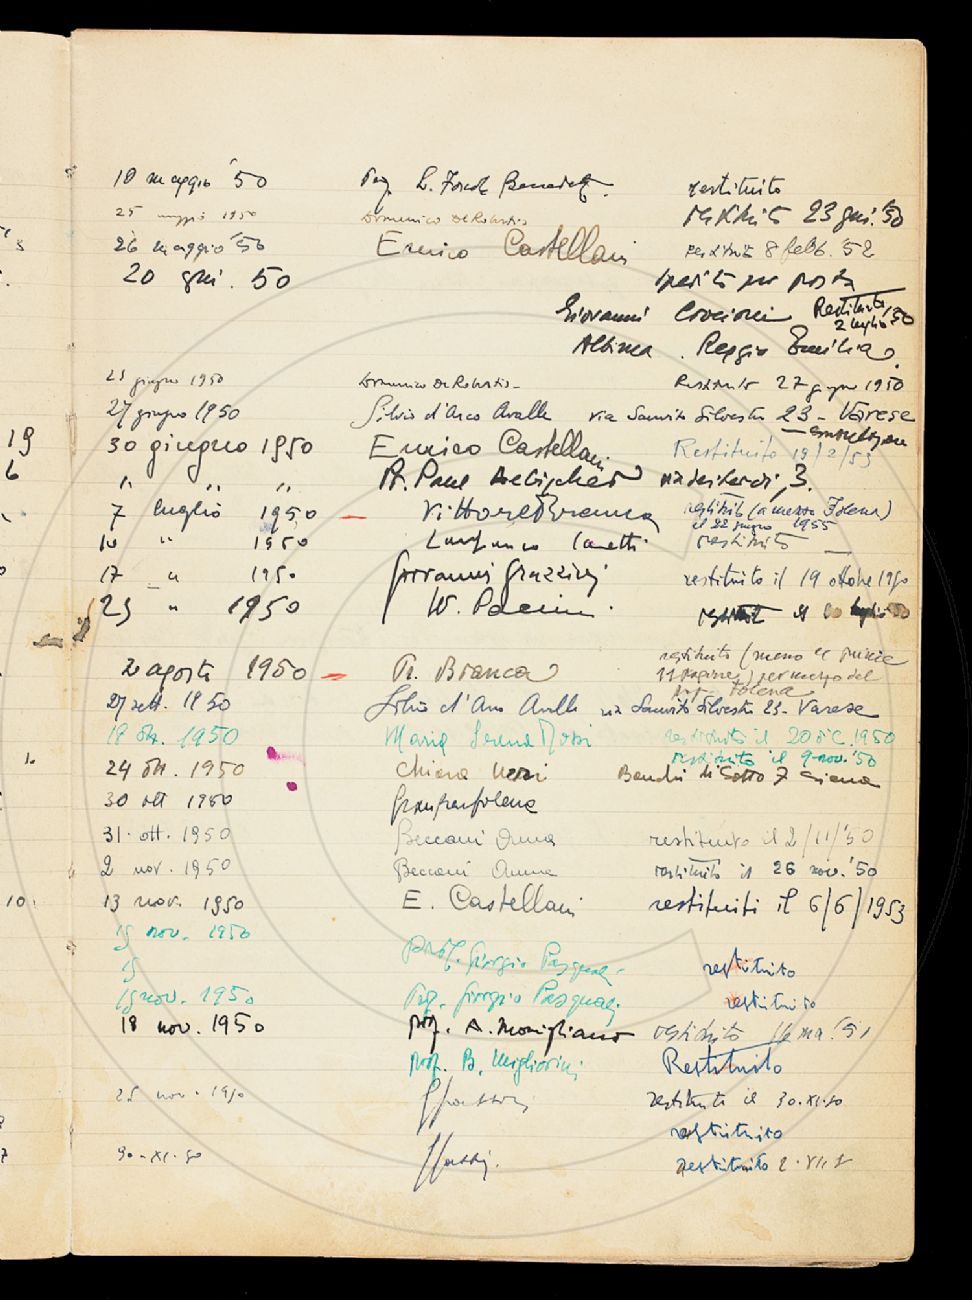 18 maggio '50 Prof. L. Foscolo Benedetto restituito
25 maggio 1950 Domenico De Robertis restituito 23 giu. '50
26 maggio '50 Enrico Castellani restituito 8 febb. '52
20 giu. 50 spedito per posta
Giovanni Crocioni Restituito
2 luglio '50
Albinea . Reggio Emilia
23 giugno 1950 Domenico De Robertis Restituito 27 giugno 1950
27 giugno 1950 Silvio d'Arco Avalle via Sanvito Silvestro 23 - Varese
30 giugno 1950 Enrico Castellani Restituito 19/2/53
" " " P. Paul Aebischer 3.
7 luglio 1950 Vittore Branca restituito (a mezzo Folena)
il 22 giugno 1955
10 " 1950 Lanfranco Caretti restituito
17 " 1950 Giovanni Grazzini restituito il 19 ottobre 1950
25 " 1950 W. Pacini restituito il luglio 50
2 agosto 1950 V. Branca restituito (meno le prime
11 pagine) per mezzo del
prof. Folena
27 sett. 1950 Silvio d'Arco Avalle via Sanvito Silvestro 23 - Varese
18 ott. 1950 Maria Serena Rossi restituito il 20 dic. 1950
restituito il 9 nov. '50
24 ott. 1950 Chiara Neri Banchi di Sotto 7 Siena
30 ott 1950 Gianfranco Folena
31. ott. 1950 Beccani Anna restituito il 2/11/'50
2 nov. 1950 Beccani Anna restituito il 26 nov. '50
13 nov. 1950 E. Castellani restituiti il 6/6/1953
15 nov. 1950
15 prof. Giorgio Pasquali restituito
15 nov. 1950 Prof. Giorgio Pasquali restituito
18 nov. 1950 prof. A. Momigliano restituito 16 ma. '51
prof. B. Migliorini Restituito
25 nov. 1950 restituito il 30.XI.50
restituito
30.XI.50 restituito